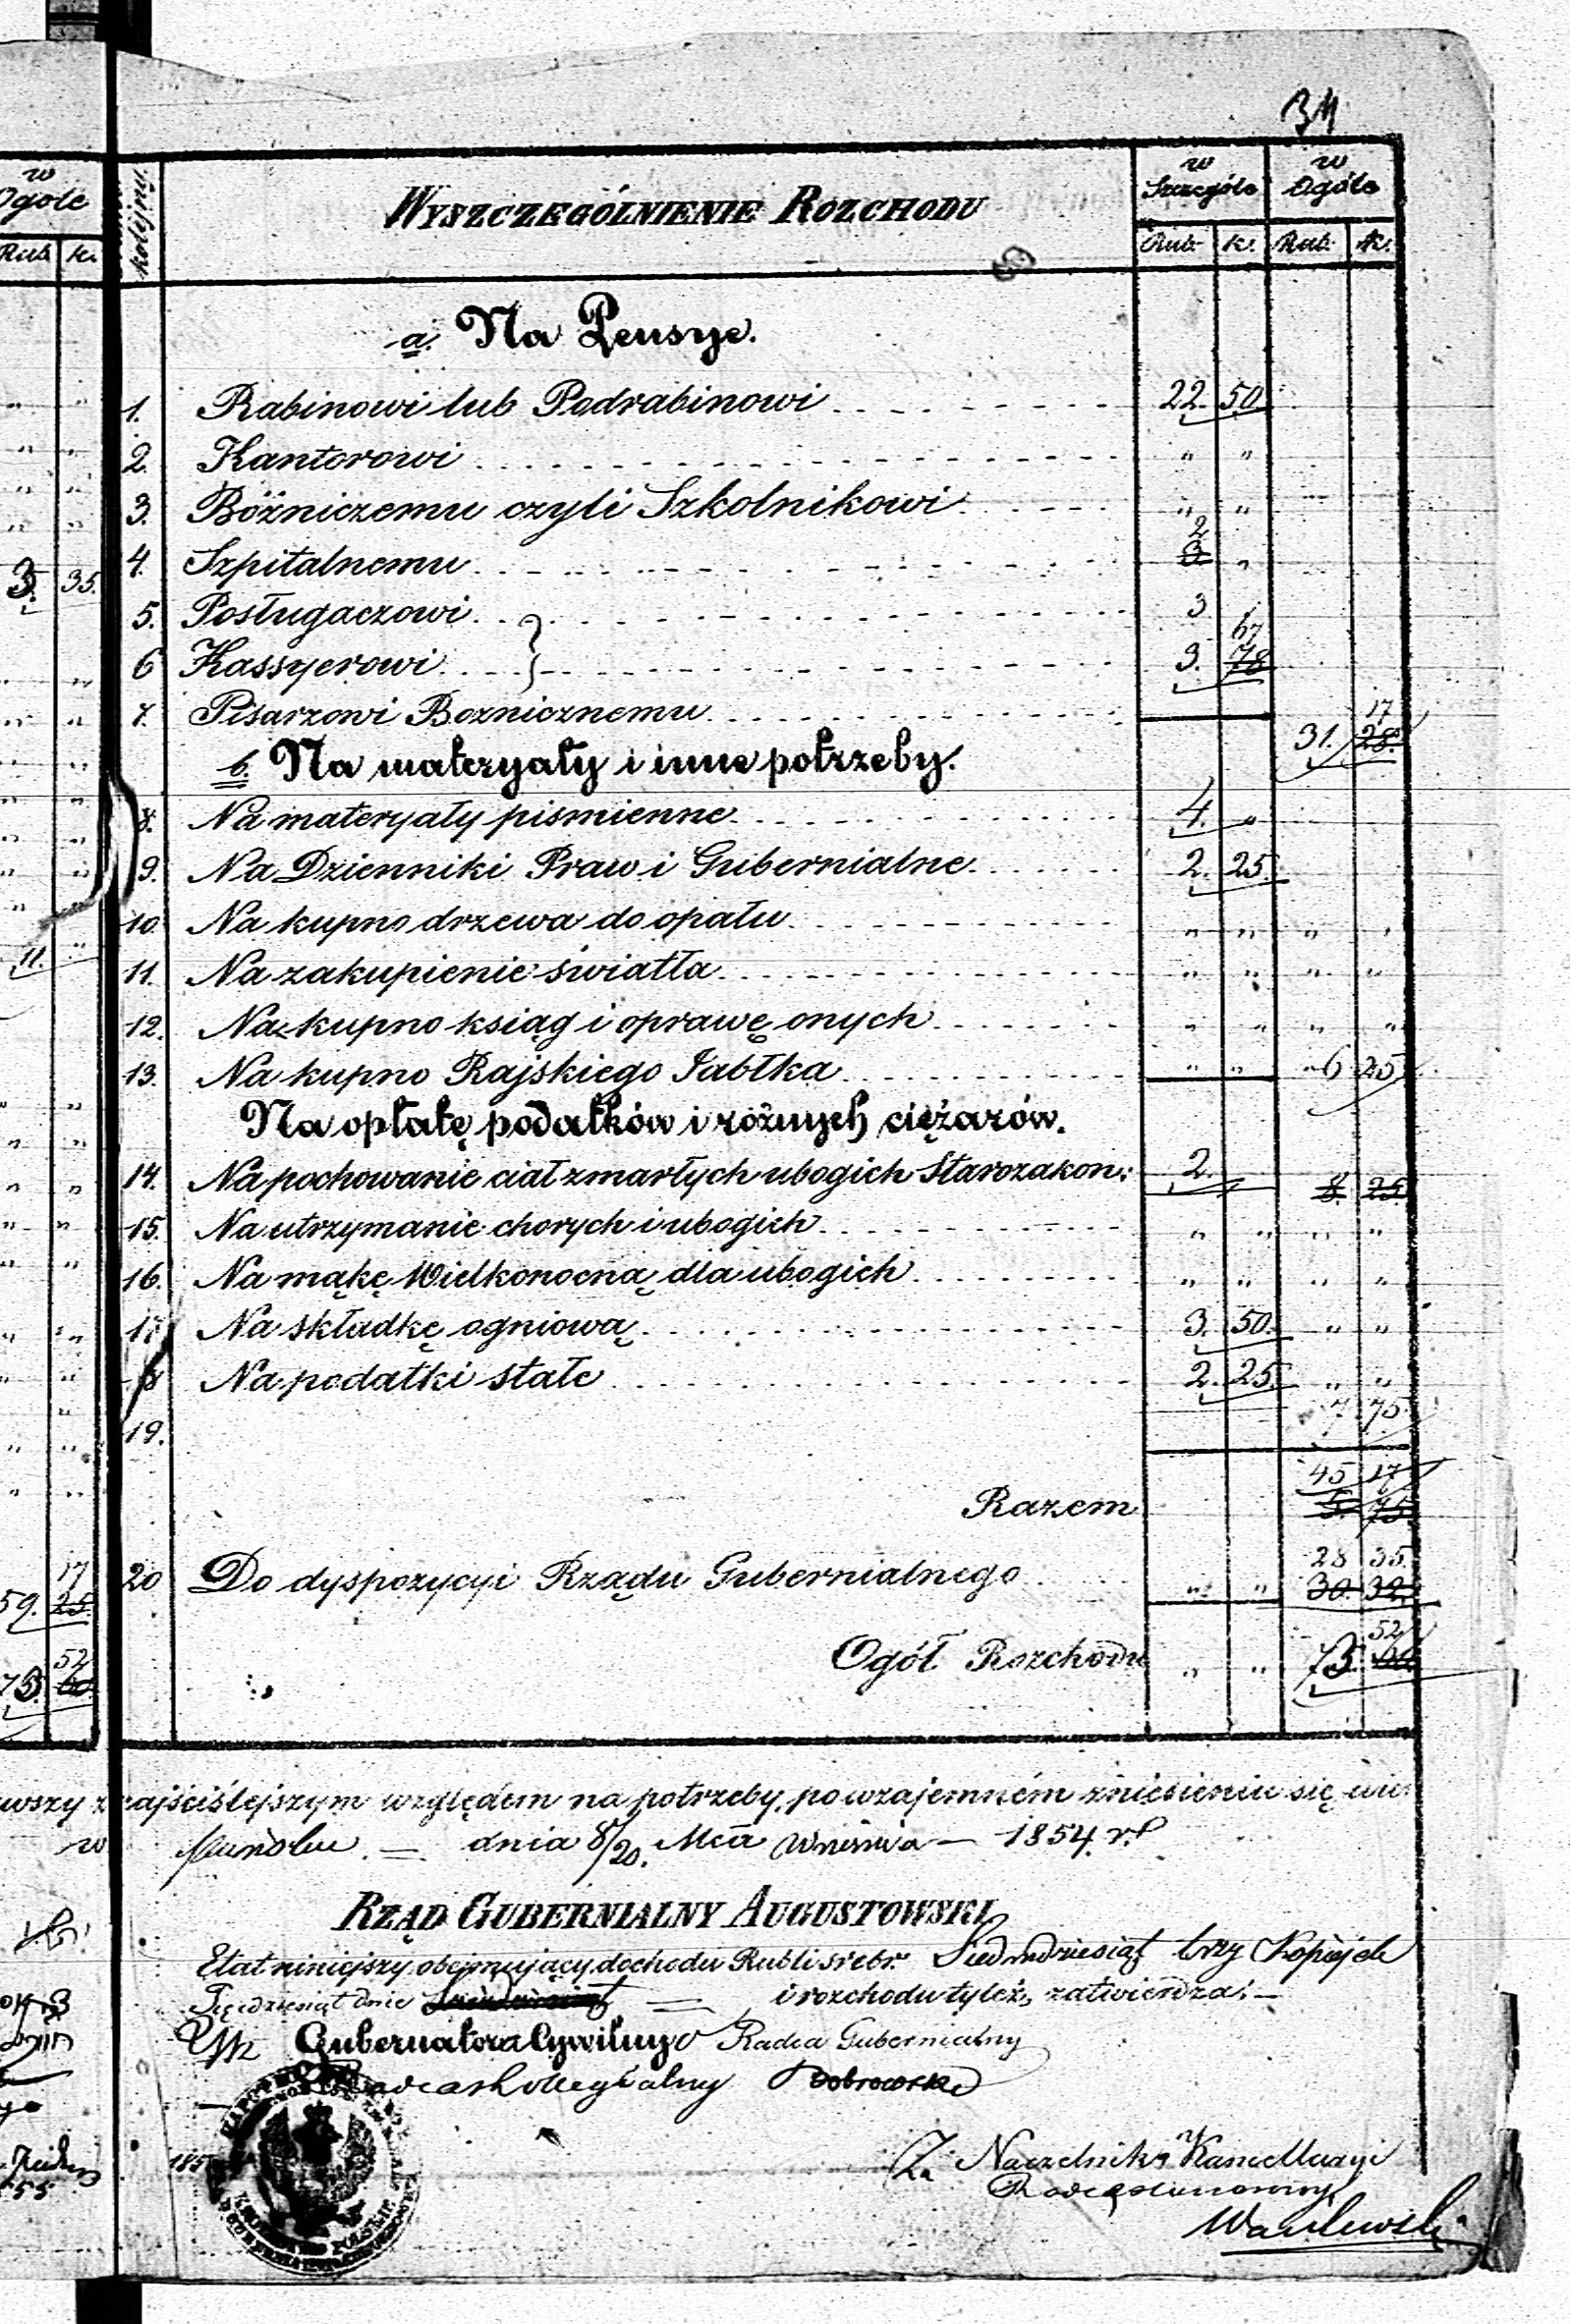 34
w Ogóle
Rub. k.
kolejny.
WYSZCZEGÓLNIENIE ROZCHODU
w Szczególe
w Ogóle
Rub. k. Rub. k.
a. Na Pensye.
1. Rabinowi lub Podrabinowi 22. 50.
2. Kantorowi " "
3. Bóżniczemu czyli Szkolnikowi " "
2
4. Szpitalnemu 3 "
3. 35.
5. Posługaczowi 3
67
6 Kassyerowi 3. 78
7. Pisarzowi Bożnicznemu
17
31. 28.
b. Na materyały i inne potrzeby.
8. Na materyały piśmienne 4. "
9. Na Dzienniki Praw i Gubernialne 2. 25.
10. Na kupno drzewa do opału " " " "
11. "
11. Na zakupienie światła " " " "
12. Na kupno ksiąg i oprawę onych " " " "
13. Na kupno Rajskiego Jabłka " " 6 25
Na opłatę podatków i różnych ciężarów.
14. Na pochowanie ciał zmarłych ubogich Starozakon: 2. 8. 25
15. Na utrzymanie chorych i ubogich " " " "
16. Na mąkę Wielkonocną dla ubogich " " " "
17 Na składkę ogniową 3. 50. " "
18 Na podatki stałe 2. 25. " "
7. 75.
19.
45 17
Razem 5. 75.
28 35.
20 Do dyspozycyi Rządu Gubernialnego " " 30. 32.
17
59. 25.
52
Ogół Rozchodu " " 73. 60.
52
73. 60.
wszy z najściślejszym względem na potrzeby, po wzajemném zniesieniu się
w dnia 8/20. Mca Września 1854. r.
RZĄD GUBERNIALNY AUGUSTOWSKI
Etat niniejszy obejmujący dochodu Rubli srebr. Siedmdziesiąt trzy Kopiejek
Pięćdziesiąt dwie i rozchodu tyleż, zatwierdza.
Gubernatora Cywilnego Radca Gubernialny
Radca Kollegialny Dobrowolski
185
Za Naczelnika Kancellaryi
Radca Honorowy
Wasilewski